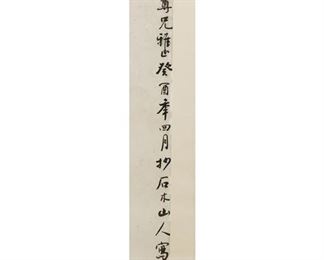 尊兄雅正癸酉年四月抄石木山人寫